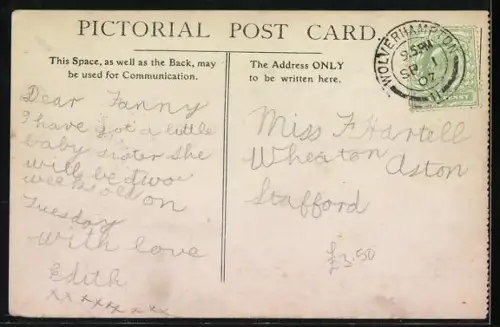 PICTORIAL POST CARD.
This Space, as well as the Back, may
be used for Communication.
The Address ONLY
to be written here.
WOLVERHAMPTON
9.5PM
SP 1
07
11
Dear Fanny
I have got a little
baby sister she
will be two
weeks old on
Tuesday
With love
Edith
xxxxxxxxx
Miss F Hartell
Wheaton Aston
Stafford
£3.50